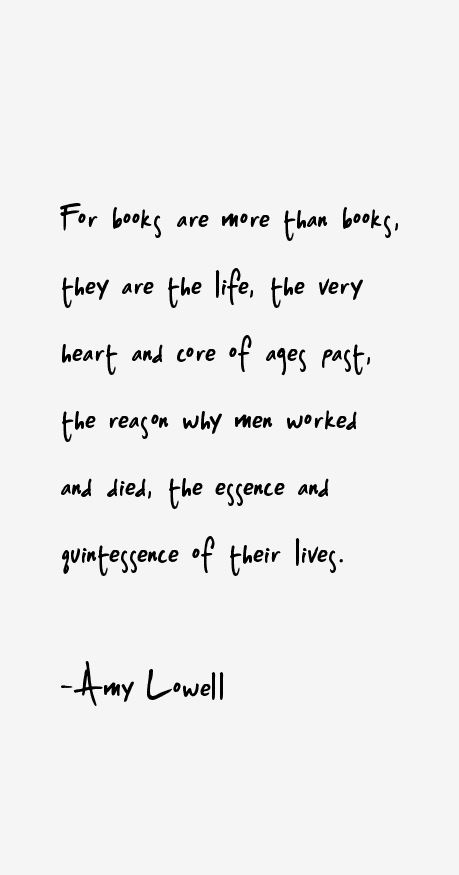 For books are more than books,
they are the life, the very
heart and core of ages past,
the reason why men worked
and died, the essence and
quintessence of their lives.
-Amy Lowell